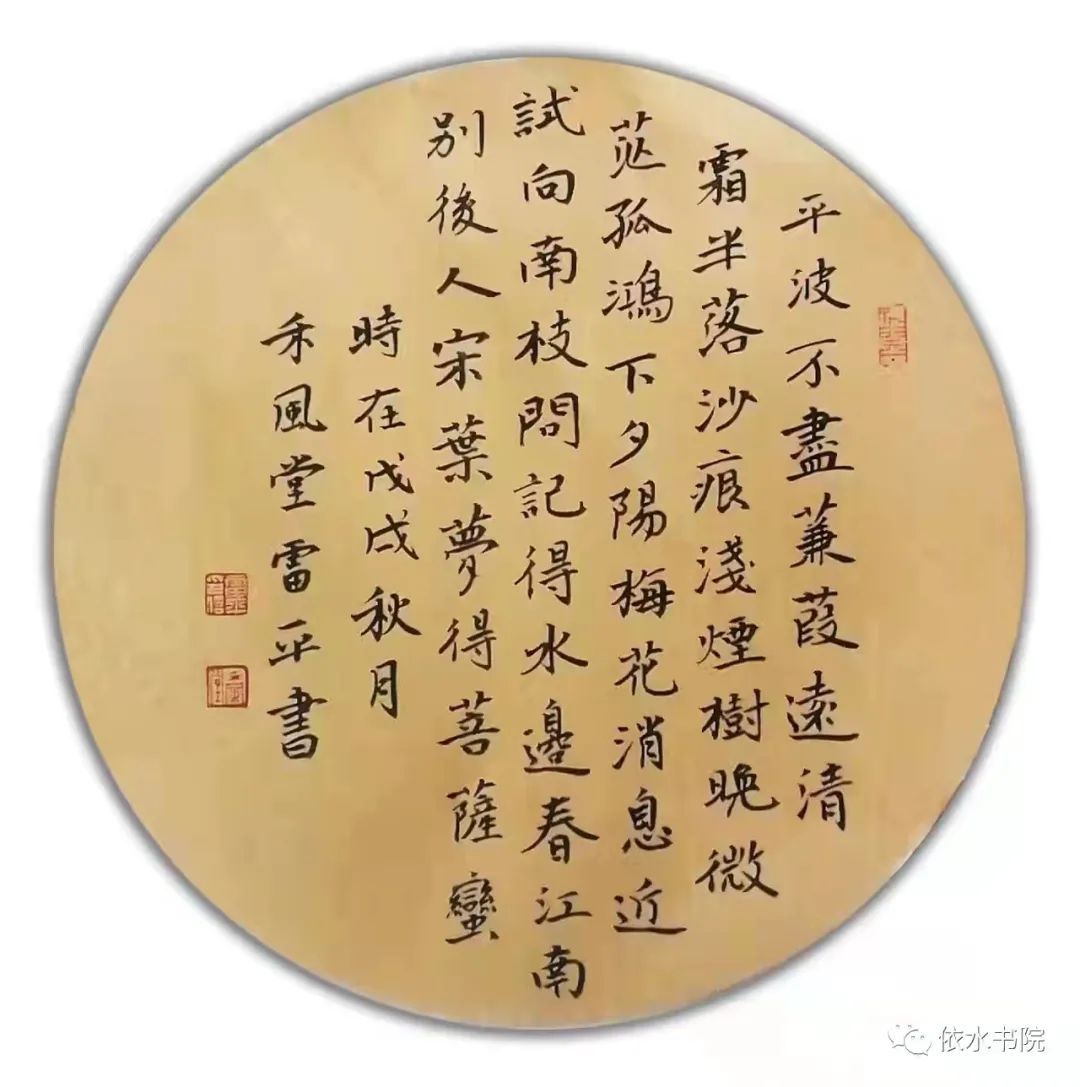 平波不盡蒹葭遠清
霜半落沙痕淺煙樹晚微
茫孤鴻下夕陽梅花消息近
試向南枝問記得水邊春江南
別後人宋葉夢得菩薩蠻
時在戊戌秋月
禾風堂雷平書
依水书院